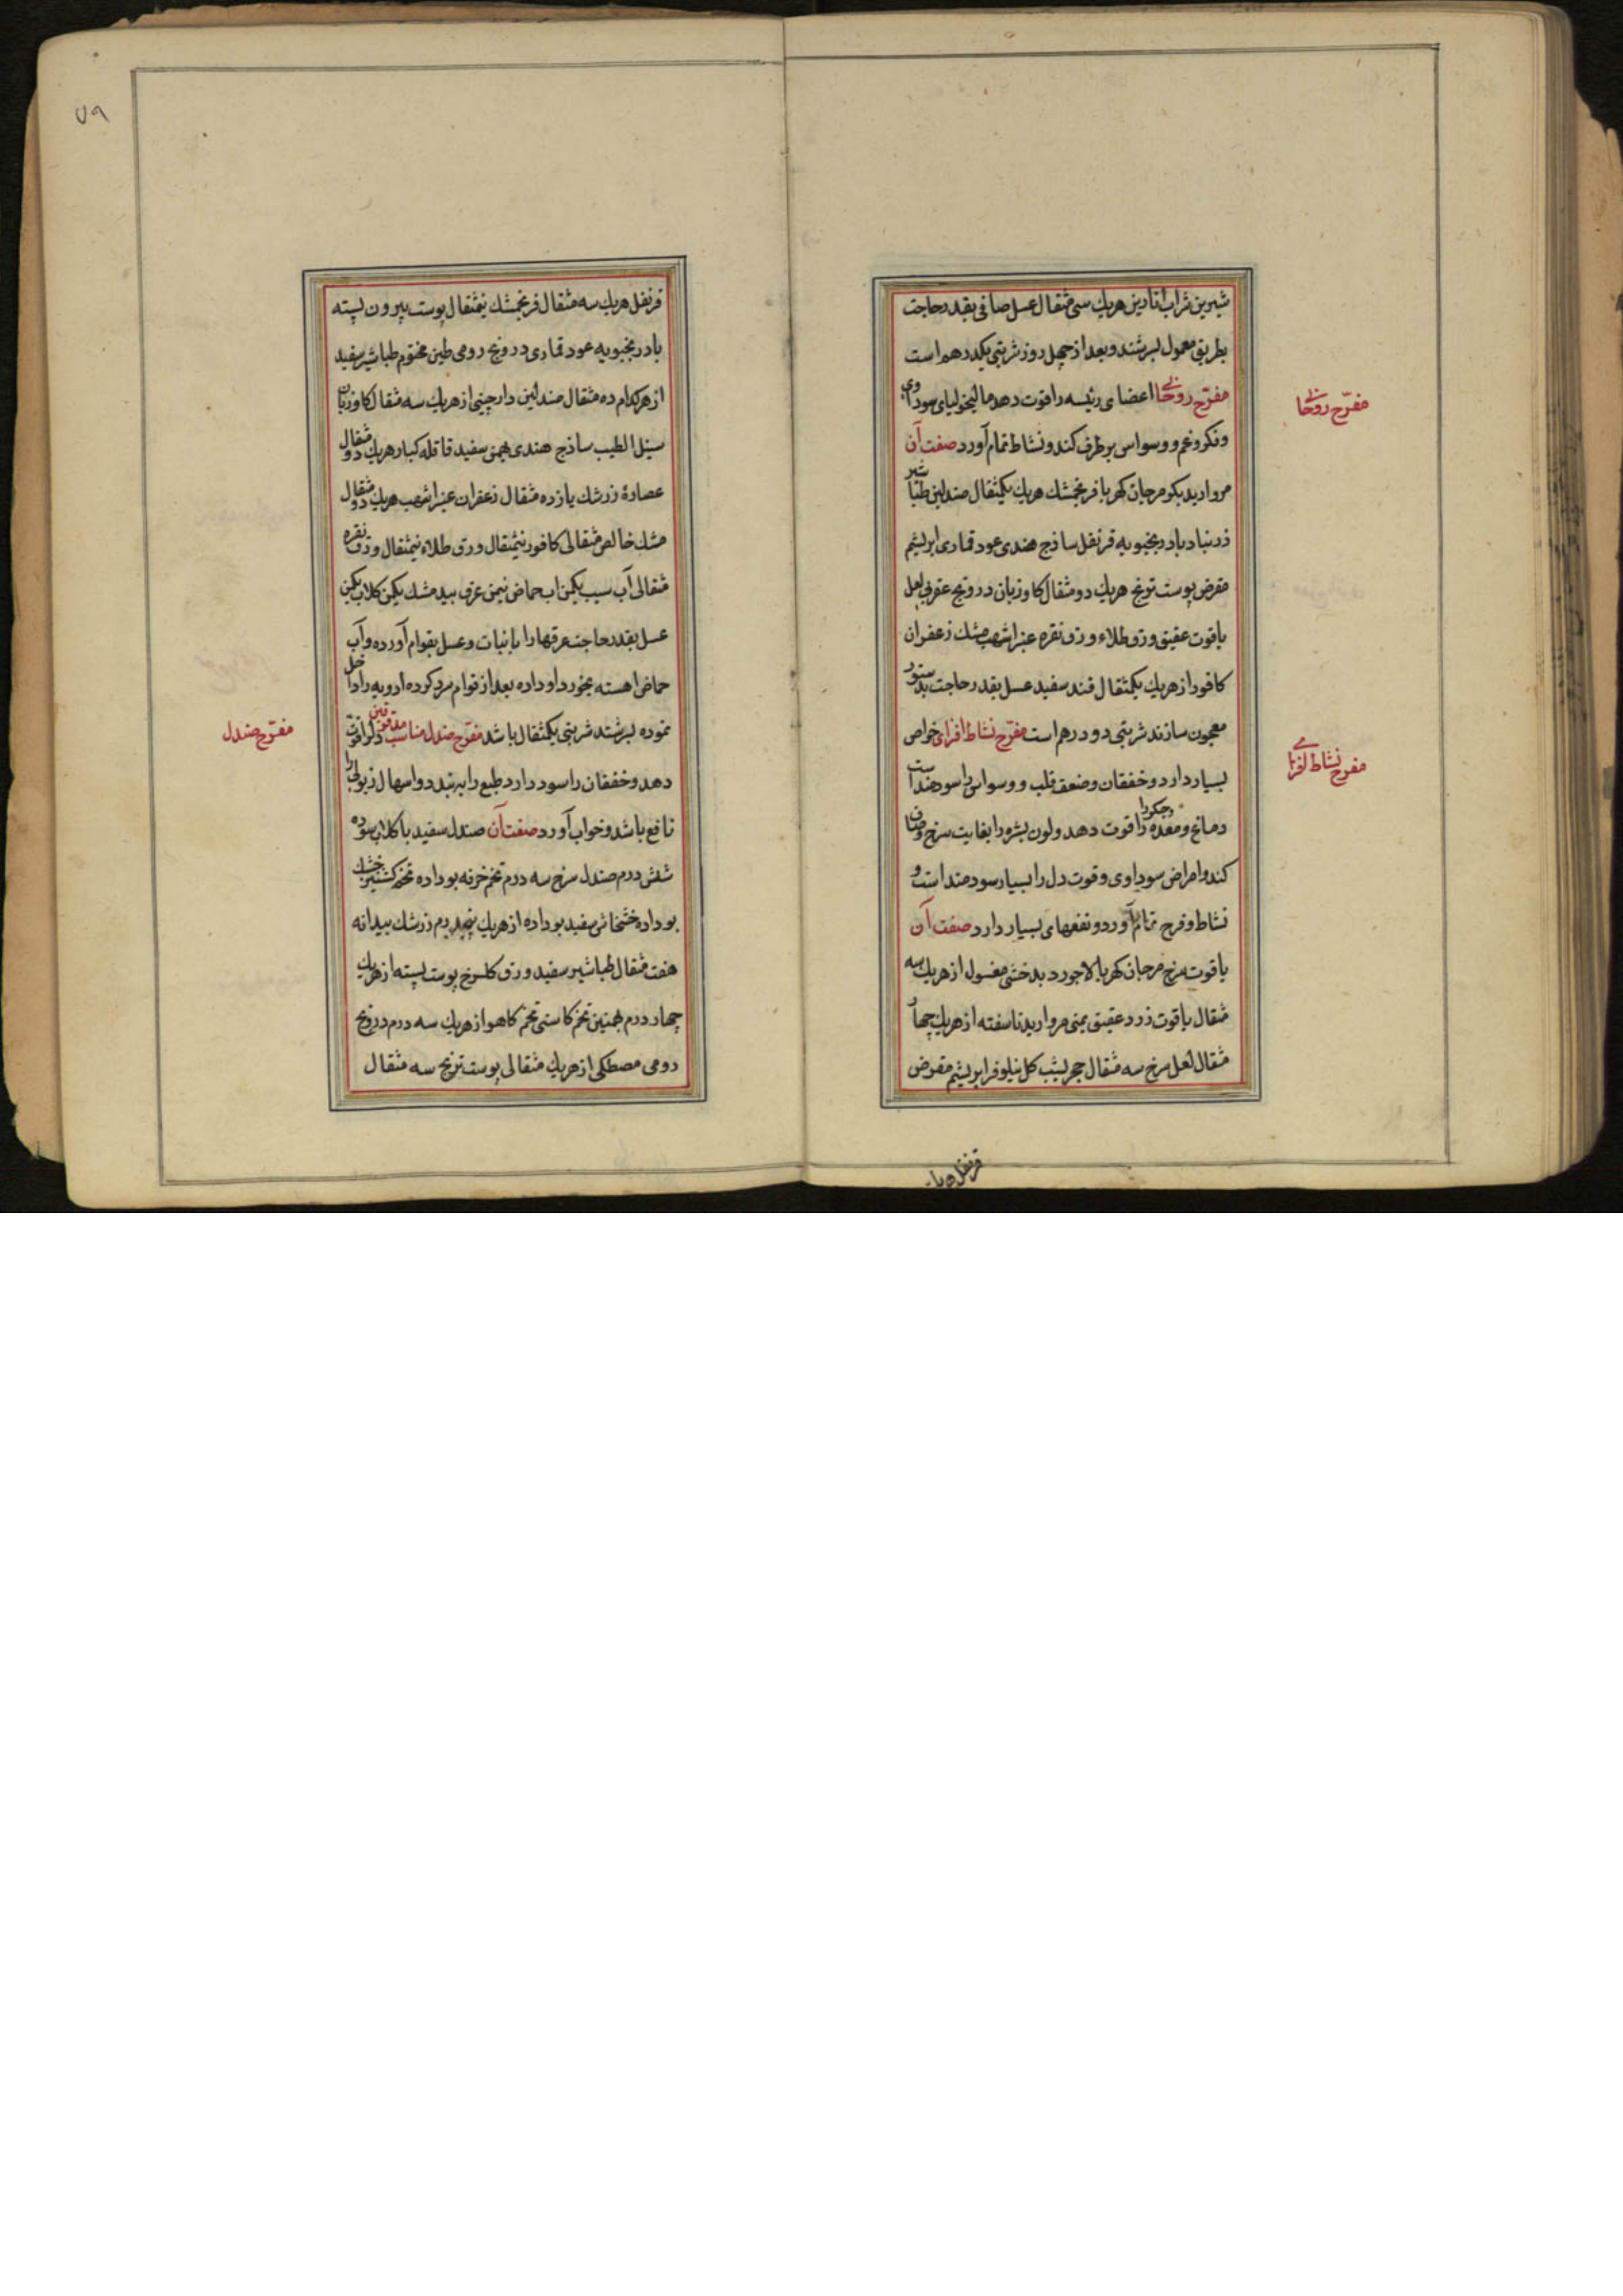 شیرین شراب انارین هریك سی مثقال عسل صافی بقدر حاجت
بطریق معمول بسرشند و بعد از چهل روز شربتی یکدرهم است
مفرّح روحانی اعضای رئیسه را قوت دهد مالیخولیای سوداوی
و فکر و غم و وسواس برطرف کند و نشاط تمام آورد صفت آن
مروارید بکر مرجان کهربا فرنجمشك هریك یکمثقال صندلین طباشیر
زرنباد بادرنجبویه قرنفل ساذج هندی عود قماری ابریشم
مقرض پوست ترنج هریك دو مثقال کاوزبان درونج عقربی لعل
یاقوت عقیق ورق طلاء ورق نقره عنبر اشهب مشك زعفران
کافور از هریك یکمثقال قند سفید عسل بقدر حاجت بدستور
معجون سازند شربتی دو درهم است مفرّح نشاط افزای خواص
بسیار دارد و خفقان و ضعف قلب و وسواس را سودمند است
دماغ و معده و جکر را قوت دهد و لون بشره را بغایت سرخ و صاف
کند و امراض سوداوی و قوت دل را بسیار سودمند است و
نشاط و فرح تمام آورد و نفعهای بسیار دارد صفت آن
یاقوت سرخ مرجان کهربا لاجورد بدخشی مغسول از هریك سه
مثقال یاقوت زرد عقیق یمنی مروارید ناسفته از هریك چهار
مثقال لعل سرخ سه مثقال حجر یشب کل نیلوفر ابریشم مقرض
مفرّح روحانی
مفرح نشاط افزای
۷۹
قرنفل هریك سه مثقال فرنجمشك نیمثقال پوست بیرون پسته
بادرنجبویه عود قماری درونج رومی طین مختوم طباشیر سفید
از هرکدام ده مثقال صندلین دارچینی از هریك سه مثقال کاوزبان
سنبل الطیب ساذج هندی بهمن سفید قاقله کبار هریك دو مثقال
عصارهٔ زرشك یازده مثقال زعفران عنبر اشهب هریك دو مثقال
مشك خالص مثقالی کافور نیمثقال ورق طلاء نیمثقال ورق نقره
مثقالی آب سیب یکمن اب حماض نیمن عرق بید مشك یکمن کلاب یکمن
عسل بقدر حاجت عرقها را با نبات و عسل بقوام آورده و آب
حماض اهسته بخورد او داده بعد از قوام سرد کرده ادویه را داخل
نموده بسرشند شربتی یکمثقال باشد مفرّح صندل مناسب مدقوقین دلرا قوت
دهد و خفقان را سود دارد طبع را به بندد و اسهال ذبولی را
نافع باشد و خواب آورد صفت آن صندل سفید با کلاب سوده
شش درم صندل سرخ سه درم تخم خرفه بو داده تخم کشنیز خشك
بو داده خشخاش سفید بو داده از هریك پنجدرم زرشك بیدانه
هفت مثقال طباشیر سفید ورق کلسرخ پوست پسته از هریك
چهار درم بهمنین تخم کاسنی تخم کاهو از هریك سه درم درونج
رومی مصطکی از هریك مثقالی پوست ترنج سه مثقال
مفرّح صندل